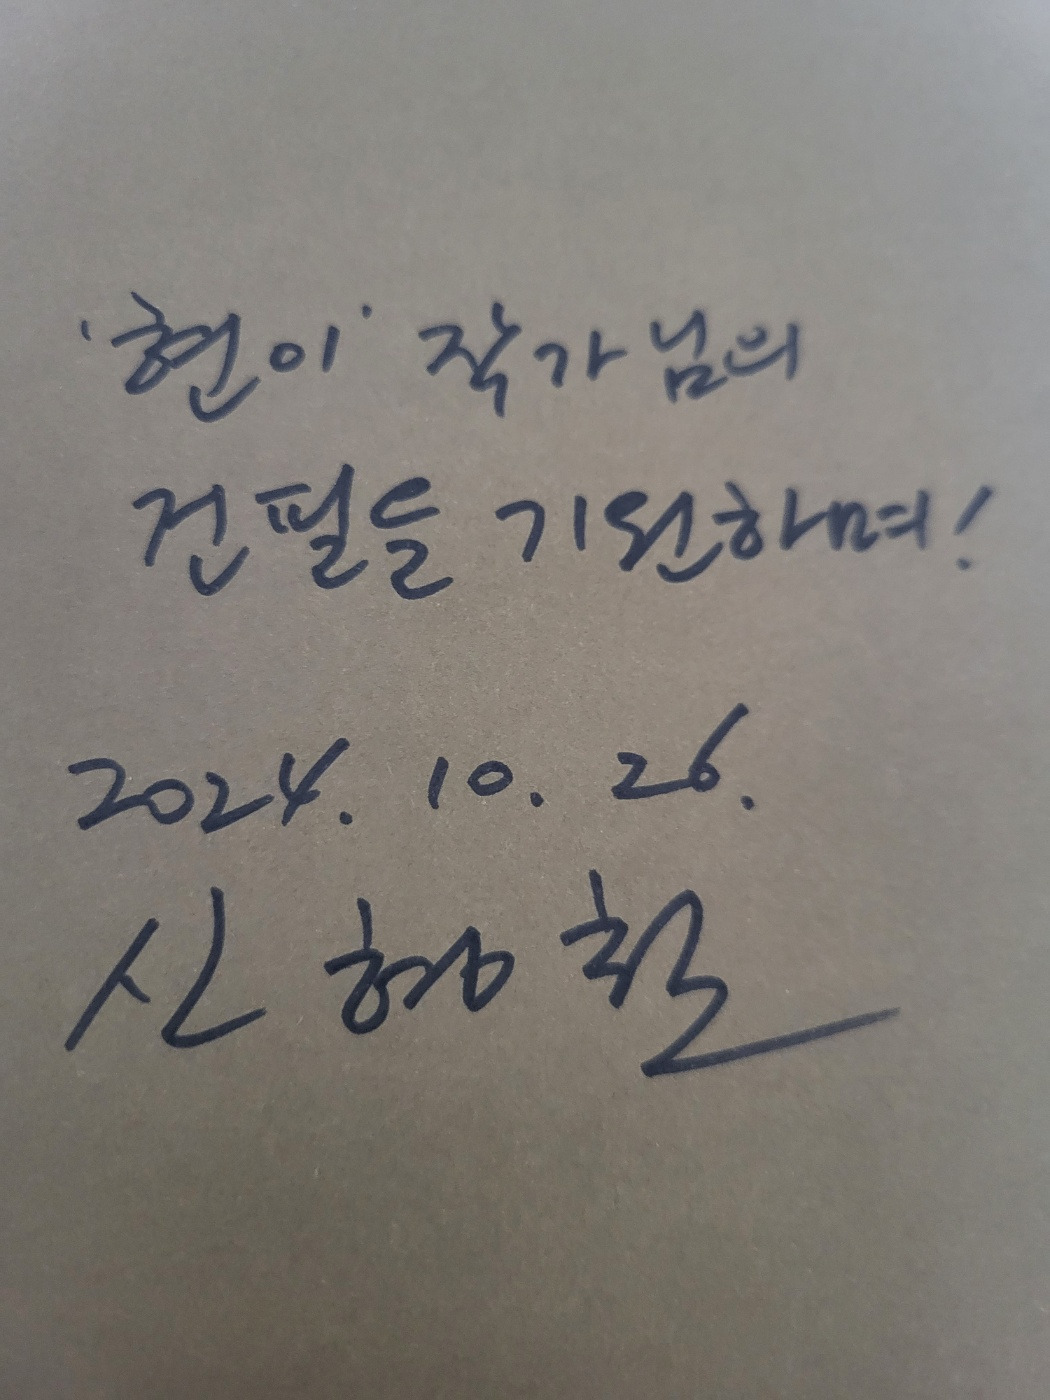 '현이' 작가님의
건필을 기원하며!
2024. 10. 26.
신형철